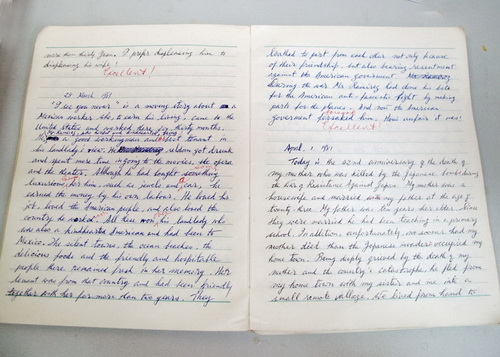 more than thirty years. I prefer displeasing him to
displeasing his wife!
Excellent!
27 March 1981
"I see you never" is a moving story about a
Mexican worker who, to earn his living, came to the
United States and worked there for thirty months.
a good
tenant in
his landlady's view. He seldom got drunk
and spent more time in going to the movies, the opera
and the theater. Although he had bought something
luxurious for him, such as jewels and cars, he
earned the money by his own labour. He loved his
job, loved the American people, and also loved the
country he worked. All these won his landlady who
was also a kindhearted American and had been to
Mexico. The silent towns, the ocean beaches, the
delicious foods and the friendly and hospitable
people there remained fresh in her memory. Her
tenant was from that country and had been friendly
together with her for more than two years. They
loathed to part from each other not only because
of their friendship, but also bearing resentment
against the American government
during the war Mr. Ramirez had done his bit
for the American anti-fascist fight by making
parts for the planes. And now the American
government forsaked him. How unfair it was!
Excellent
April 1, 1981
Today is the 42nd anniversary of the death of
my mother who was killed by the Japanese bombs during
the War of Resistance Against Japan. My mother was a
housewife and married with my father at the age of
twenty-three. My father was ten years older when
they were married & he had been teaching in a primary
school. In addition, unfortunately, no sooner had my
mother died than the Japanese invaders occupied my
home town. Being deeply grieved by the death of my
mother and the country's catastrophe he fled from
my home town with my sister and me into a
small remote village. We lived from hand to